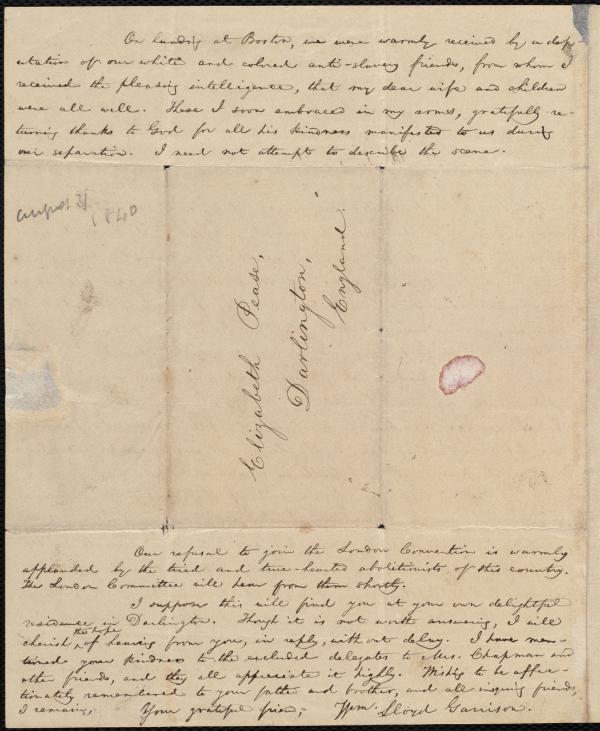 On landing at Boston, we were warmly received by a dep-
utation of our white and colored anti-slavery friends, from whom I
received the pleasing intelligence, that my dear wife and children
were all well. These I soon embraced in my arms, gratefully re-
turning thanks to God for all his kindness manifested to us during
our separation. I need not attempt to describe the scene.
august 31
1840
Elizabeth Pease,
Darlington,
England.
Our refusal to join the London Convention is warmly
applauded by the tried and true-hearted abolitionists of this country.
The London Committee will hear from them shortly.
I suppose this will find you at your own delightful
residence in Darlington. Though it is not worth answering, I will
cherish the hope of hearing from you, in reply, without delay. I have men-
tioned your kindness to the excluded delegates to Mrs. Chapman and
other friends, and they all appreciate it highly. Wishing to be affec-
tionately remembered to your father and brother, and all inquiring friends,
I remain, Your grateful friend, Wm. Lloyd Garrison.